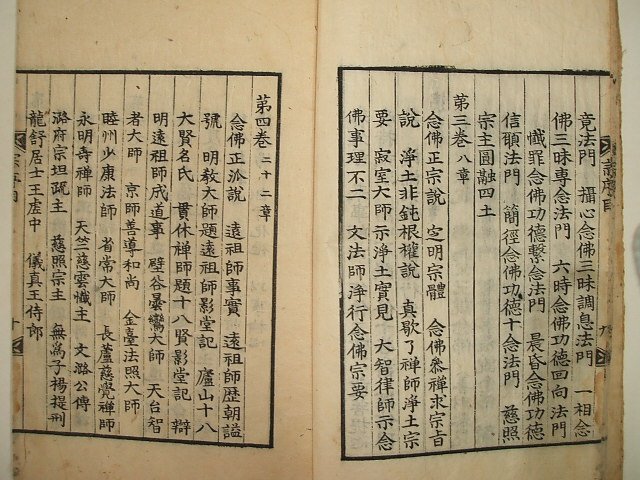 竟法門　攝心念佛三昧調息法門　一相念
佛三昧專念法門　六時念佛功德回向法門
懺罪念佛功德繫念法門　晨昏念佛功德
信願法門　簡徑念佛功德十念法門　慈照
宗主圓融四土
第三卷八章
念佛正宗說　定明宗體　念佛叅禪求宗旨
說　淨土非鈍根權說　真歇了禪師淨土宗
要　寂室大師示淨土實見　大智律師示念
佛事理不二　文法師淨行念佛宗要
第四卷二十二章
念佛正派說　遠祖師事實　遠祖師歷朝諡
號　明教大師題遠祖師影堂記　廬山十八
大賢名氏　貫休禪師題十八賢影堂記　辯
明遠祖師成道事　壁谷曇鸞大師　天台智
者大師　京師善導和尚　金臺法照大師
睦州少康法師　省常大師　長蘆慈覺禪師
永明壽禪師　天竺慈雲懺主　文潞公傳
潞府宗坦疏主　慈照宗主　無爲子楊提刑
龍舒居士王虛中　儀真王侍郎